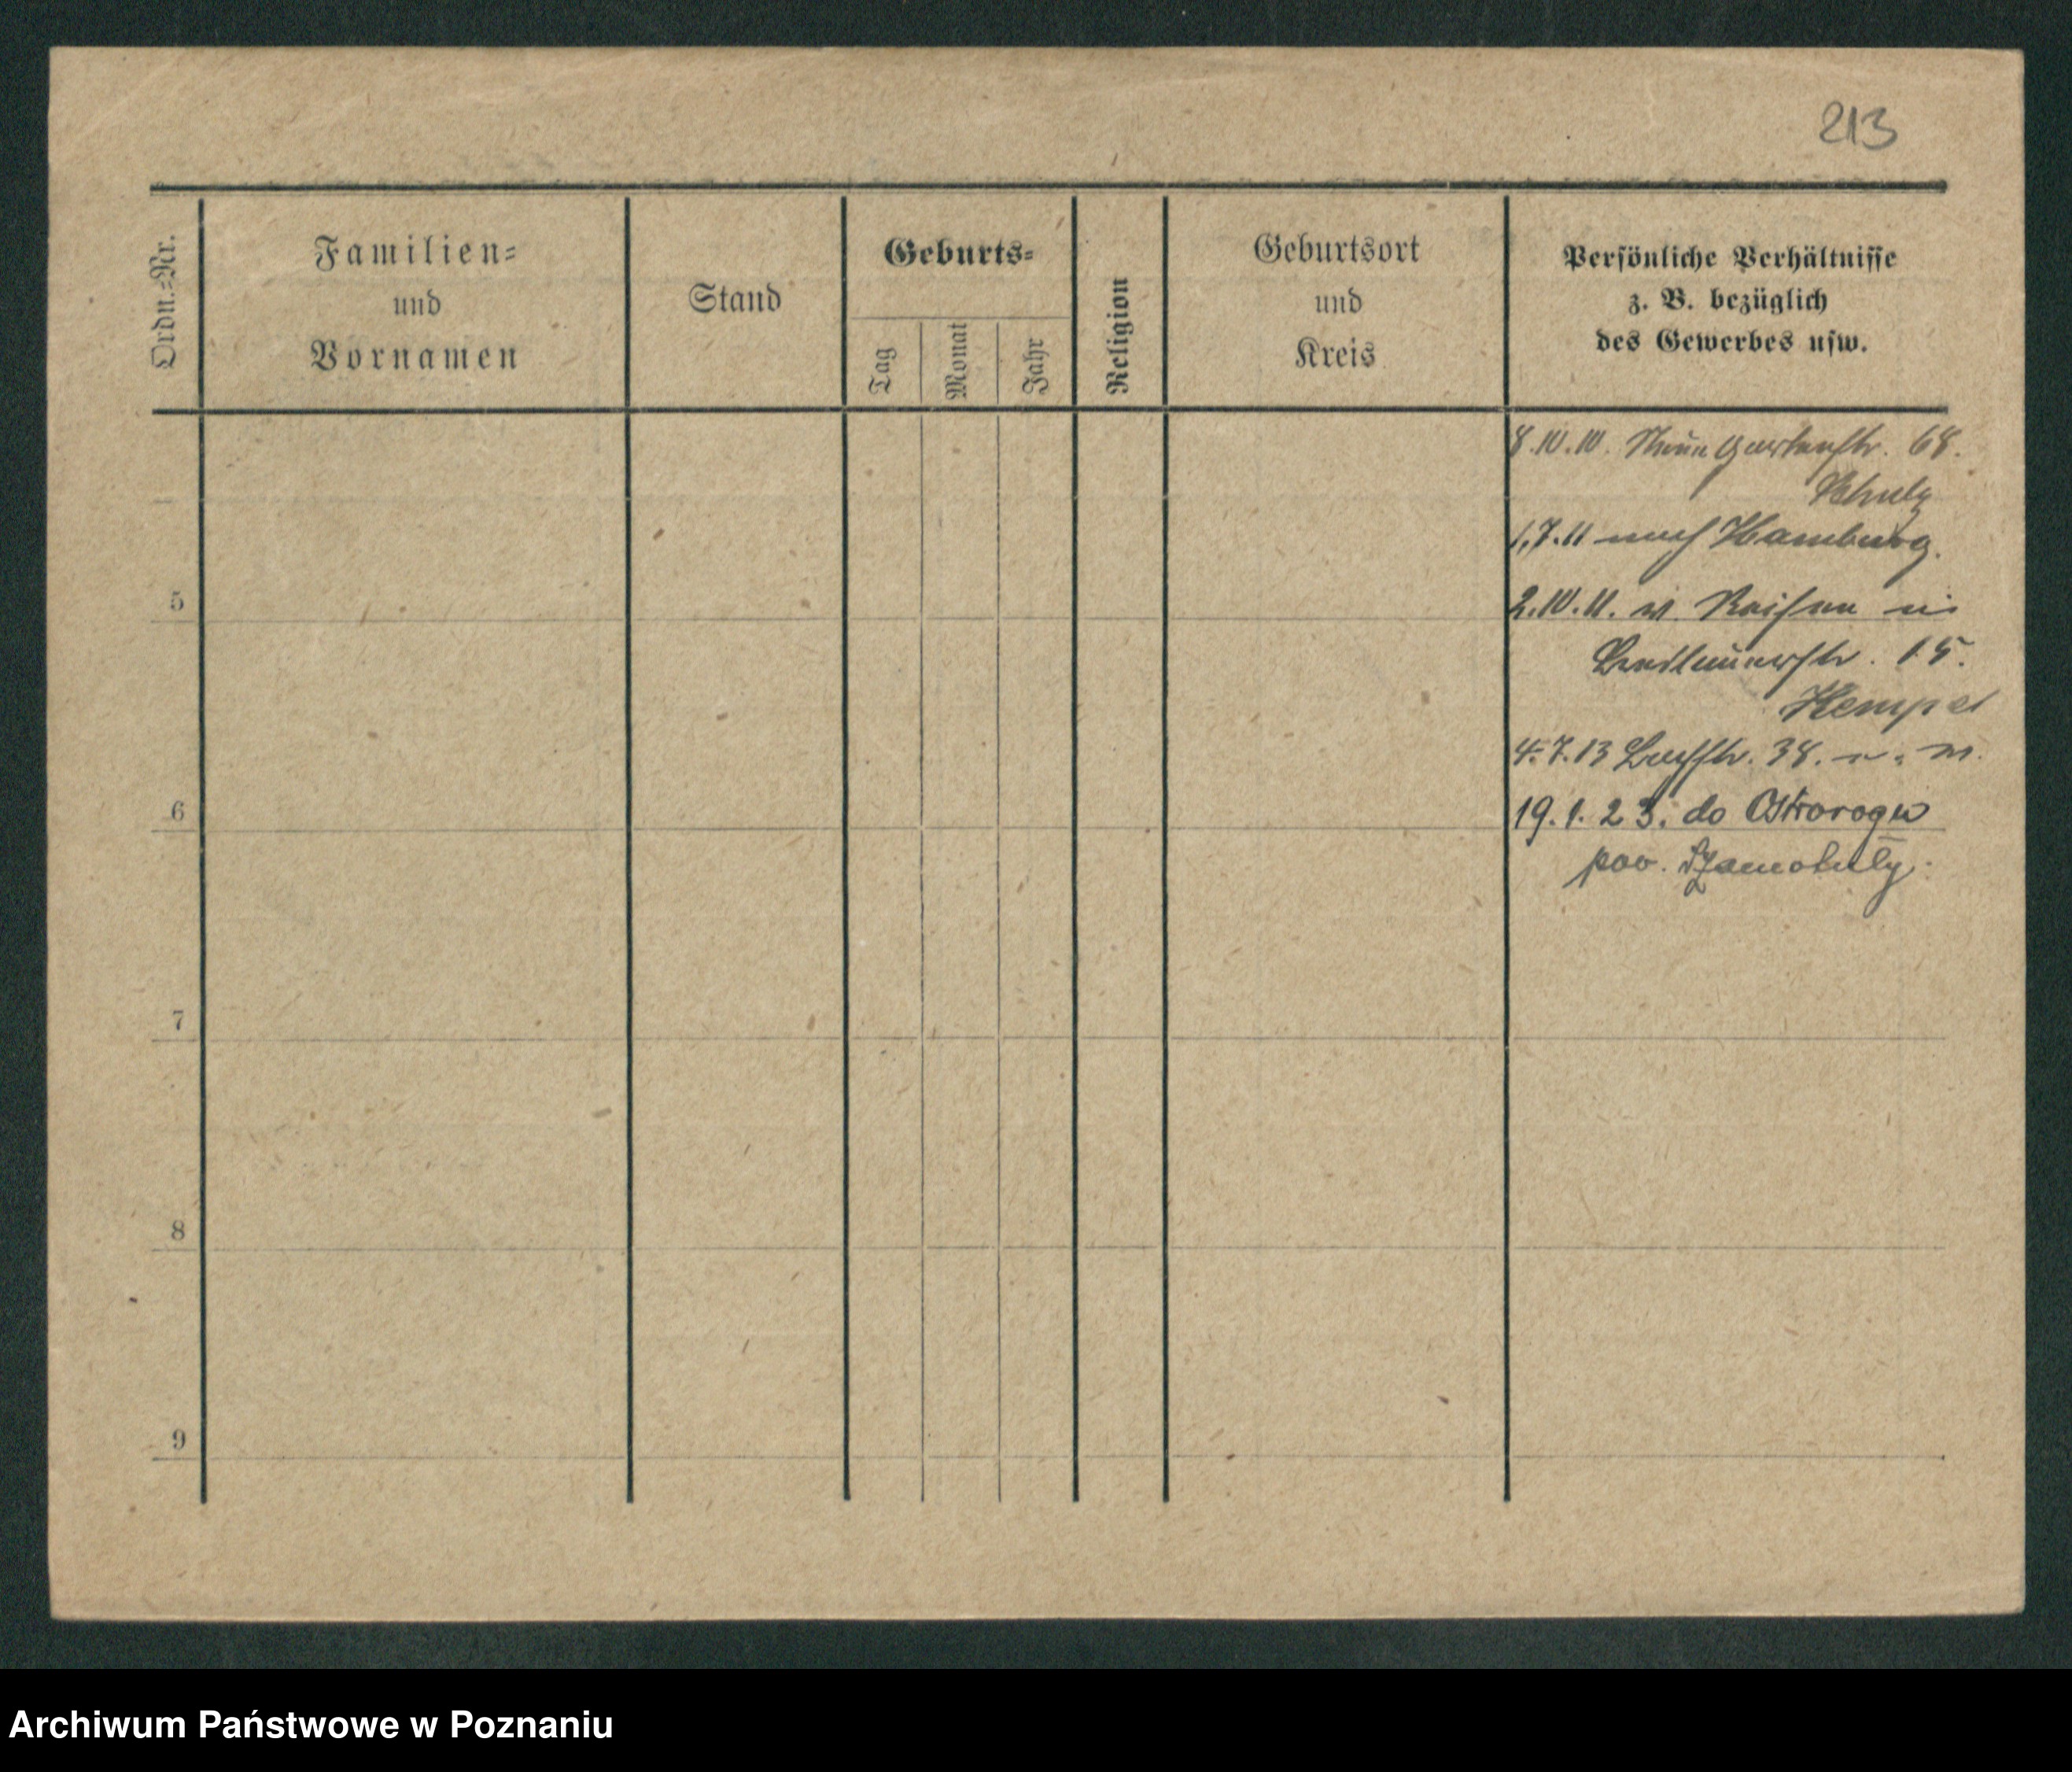 213
Ordn.-Nr.
Familien-
und
Vornamen
Stand
Geburts-
Tag
Monat
Jahr
Religion
Geburtsort
und
Kreis
Persönliche Verhältnisse
z. B. bezüglich
des Gewerbes usw.
8.10.10. Neue Gartenstr. 68.
Schulz
1.7.11 nach Hamburg.
2.10.11. v. Reisen in
15.
Hempel
4.7.13 38.
19.1.23. do Ostroroga
pow. Szamotuły.
5
6
7
8
9
Archiwum Państwowe w Poznaniu